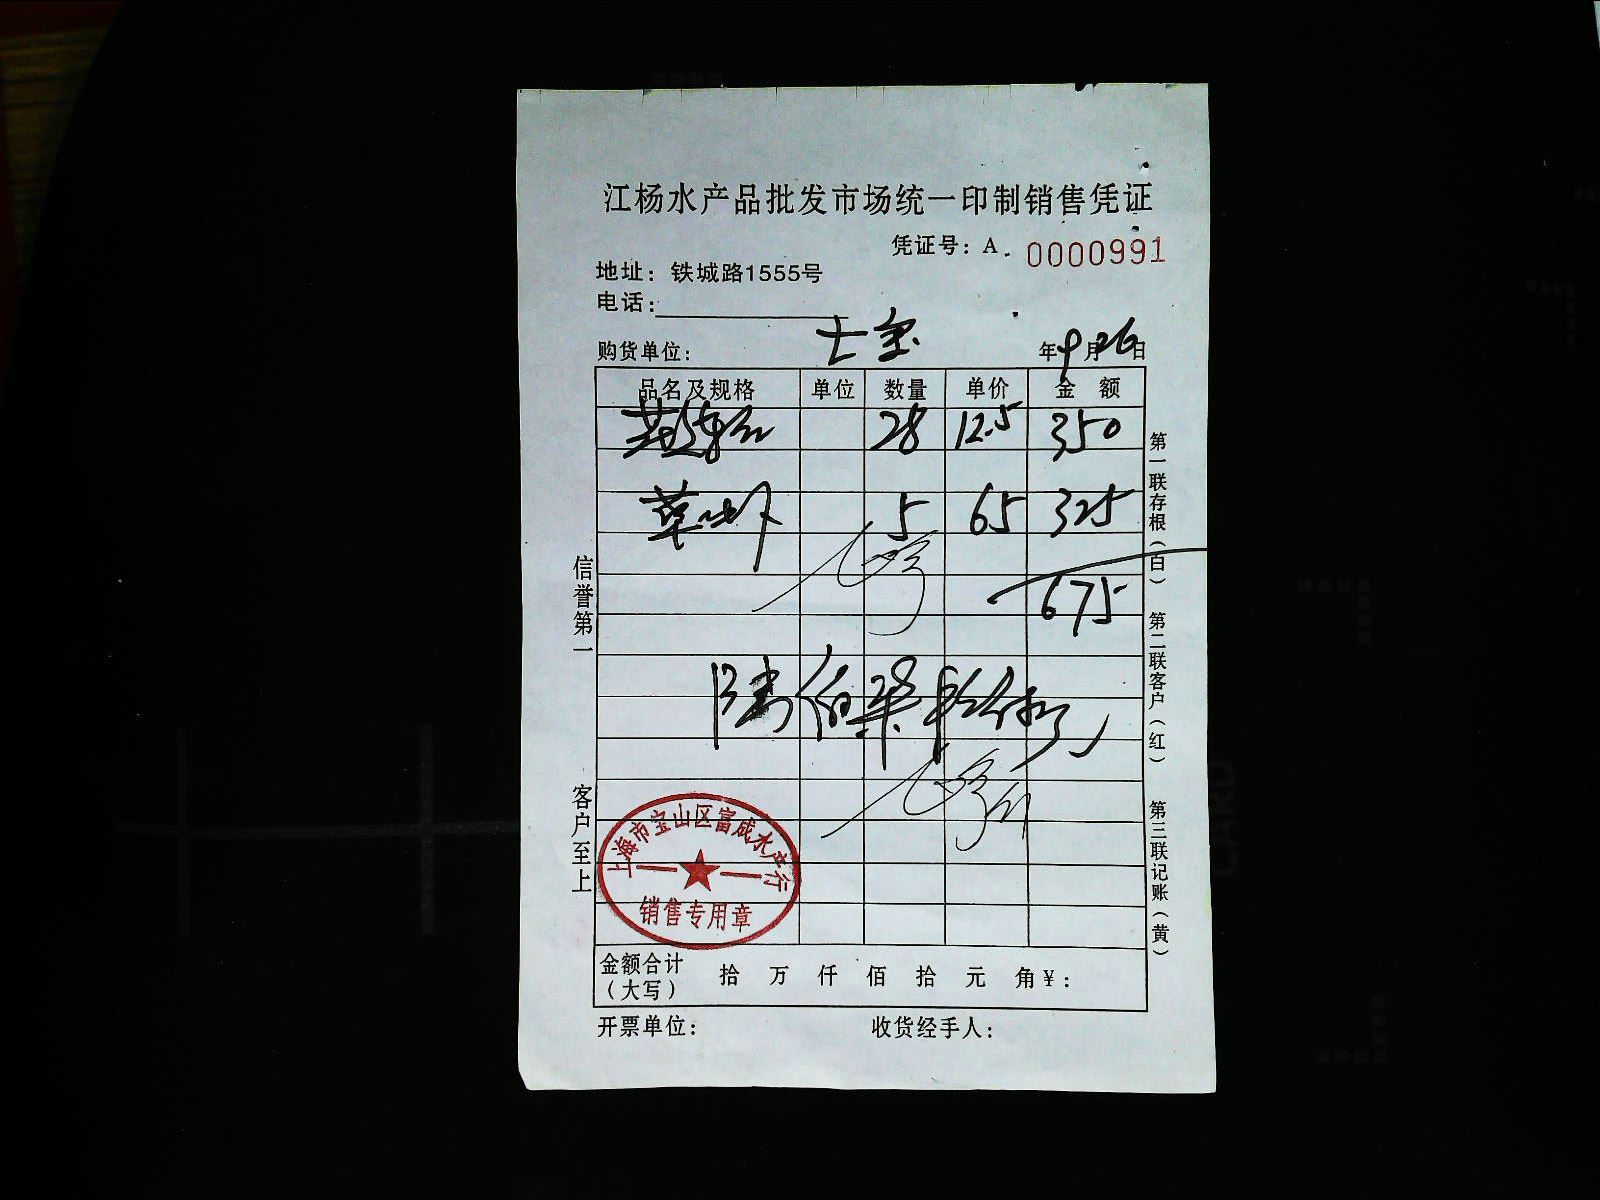 江杨水产品批发市场统一印制销售凭证
凭证号：A. 0000991
地址：铁城路1555号
电话：
购货单位：
年 9月 26日
品名及规格 单位 数量 单价 金额
28 12.5 350
草虾 5 65 325
675
陆佰柒拾伍元
信誉第一
客户至上
第一联存根（白） 第二联客户（红） 第三联记账（黄）
上海市宝山区富成水产行
销售专用章
金额合计（大写） 拾 万 仟 佰 拾 元 角 ¥：
开票单位： 收货经手人：